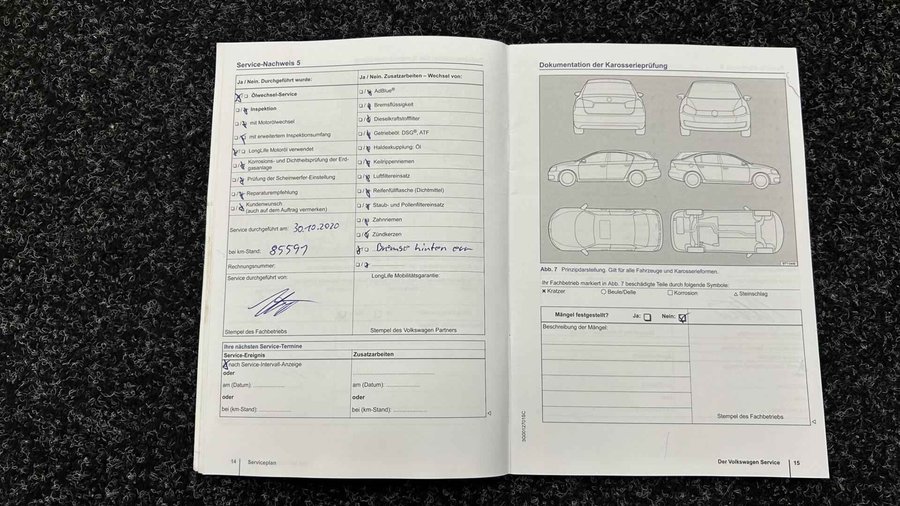 Service-Nachweis 5
Ja / Nein. Durchgeführt wurde:
Ölwechsel-Service
Inspektion
mit Motorölwechsel
mit erweitertem Inspektionsumfang
LongLife Motoröl verwendet
Korrosions- und Dichtheitsprüfung der Erd-
gasanlage
Prüfung der Scheinwerfer-Einstellung
Reparaturempfehlung
Kundenwunsch
(auch auf dem Auftrag vermerken)
Service durchgeführt am: 30.10.2020
bei km-Stand: 85591
Rechnungsnummer:
Service durchgeführt von:
Stempel des Fachbetriebs
Ja / Nein. Zusatzarbeiten – Wechsel von:
AdBlue®
Bremsflüssigkeit
Dieselkraftstofffilter
Getriebeöl: DSG®, ATF
Haldexkupplung: Öl
Keilrippenriemen
Luftfiltereinsatz
Reifenfüllflasche (Dichtmittel)
Staub- und Pollenfiltereinsatz
Zahnriemen
Zündkerzen
Bremse hinten
LongLife Mobilitätsgarantie:
Stempel des Volkswagen Partners
Ihre nächsten Service-Termine
Service-Ereignis
nach Service-Intervall-Anzeige
oder
am (Datum):
oder
bei (km-Stand):
Zusatzarbeiten
am (Datum):
oder
bei (km-Stand):
14 Serviceplan
Dokumentation der Karosserieprüfung
Abb. 7 Prinzipdarstellung. Gilt für alle Fahrzeuge und Karosserieformen.
Ihr Fachbetrieb markiert in Abb. 7 beschädigte Teile durch folgende Symbole:
× Kratzer ○ Beule/Delle □ Korrosion △ Steinschlag
Mängel festgestellt? Ja: Nein:
Beschreibung der Mängel:
Stempel des Fachbetriebs
Der Volkswagen Service 15